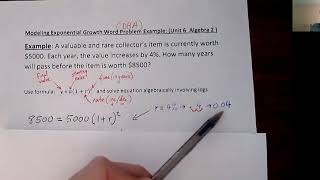 (DHA)
Modeling Exponential Growth Word Problem Example: (Unit 6 Algebra 2)
Example: A valuable and rare collector's item is currently worth
$5000. Each year, the value increases by 4%. How many years
will pass before the item is worth $8500?
final value
starting value
time (in years)
Use formula: y = a(1+r)ᵗ and solve equation algebraically involving logs
rate (inc/dec)
8500 = 5000 (1+r)ᵗ
r = 4% → 4 → 0.04